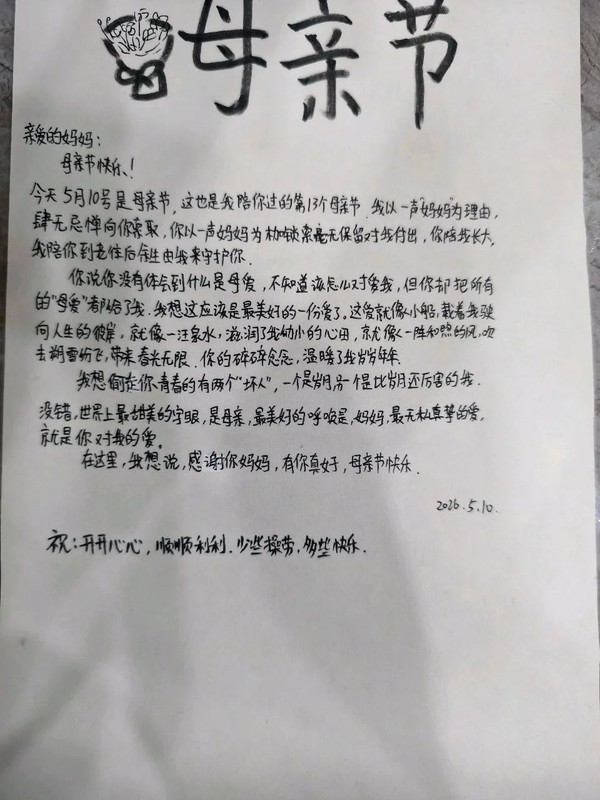 母亲节
亲爱的妈妈:
母亲节快乐、!
今天5月10号是母亲节,这也是我陪你过的第13个母亲节.我以一声"妈妈"为理由,
肆无忌惮向你索取,你以一声妈妈为枷锁毫无保留对我付出,你陪我长大,
我陪你到老往后余生由我来守护你.
你说你没有体会到什么是母爱,不知道该怎么对爱我,但你却把所有
的"母爱"都给了我.我想这应该是最美好的一份爱了.这爱就像小船,载着我驶
向人生的彼岸,就像一汪泉水,滋润了我幼小的心田,就像一阵和煦的风,吹
去朔雪纷飞,带来春光无限.你的碎碎念念,温暖了我岁岁年年.
我想偷走你青春的有两个"坏人",一个是岁月,另一个是比岁月还厉害的我.
没错,世界上最甜美的字眼,是母亲,最美好的呼唤是,妈妈,最无私真挚的爱,
就是你对我的爱。
在这里,我想说,感谢你妈妈,有你真好,母亲节快乐.
2026.5.10.
祝:开开心心,顺顺利利.少些操劳,多些快乐.